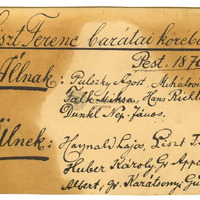 szt Ferenc barátai köreb
Pest. 187
Állnak: Pulszky Ágost, Mihálov
Falk Miksa, Hans Richt
Dunkl Nep. János.
Ülnek: Haynald Lajos, Liszt F
Huber Károly, Gr. Appo
Albert, gr. Karátsonyi Gu